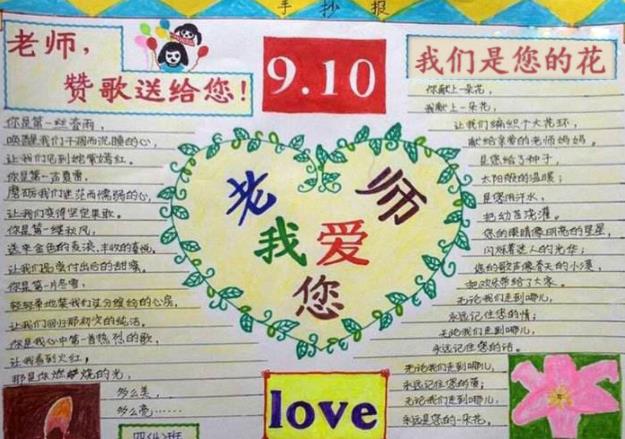 手抄报
老师，
赞歌送给您！
9.10
我们是您的花
你是第一丝春雨，
唤醒我们干涸而沉睡的心，
让我们见到姹紫嫣红。
你是第一声春雷，
让我们变得坚定果敢。
你是第一缕秋风，
送来金色的麦浪，丰收的喜悦，
让我们品尝付出后的甜蜜。
你是第一片冬雪，
让我们回归那初次的纯洁。
你是我心中第一首热烈的歌，
让我看到火红，
那是你燃烧的光，
多么美，
多么亮……
老师
我爱
您
你献上一朵花，
我献上一朵花，
让我们编织个大花环，
献给亲爱的老师妈妈。
是您给了种子，
太阳般的温暖；
是您用汗水，
把幼苗浇灌。
您的眼睛像明亮的星星，
闪烁着迷人的光华；
您的歌声像春天的小溪，
把欢乐带给了大家。
无论我们走到哪儿，
永远记住您的情；
无论我们走到哪儿，
永远记住您的话。
无论我们走到哪儿，
永远记住您的情；
无论我们走到哪儿，
永远是您的一朵花。
love